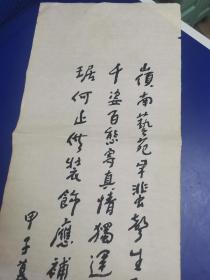 嶺南藝苑早蜚聲生
千姿百態寫真情獨運
琚何止供裝飾應補
甲子